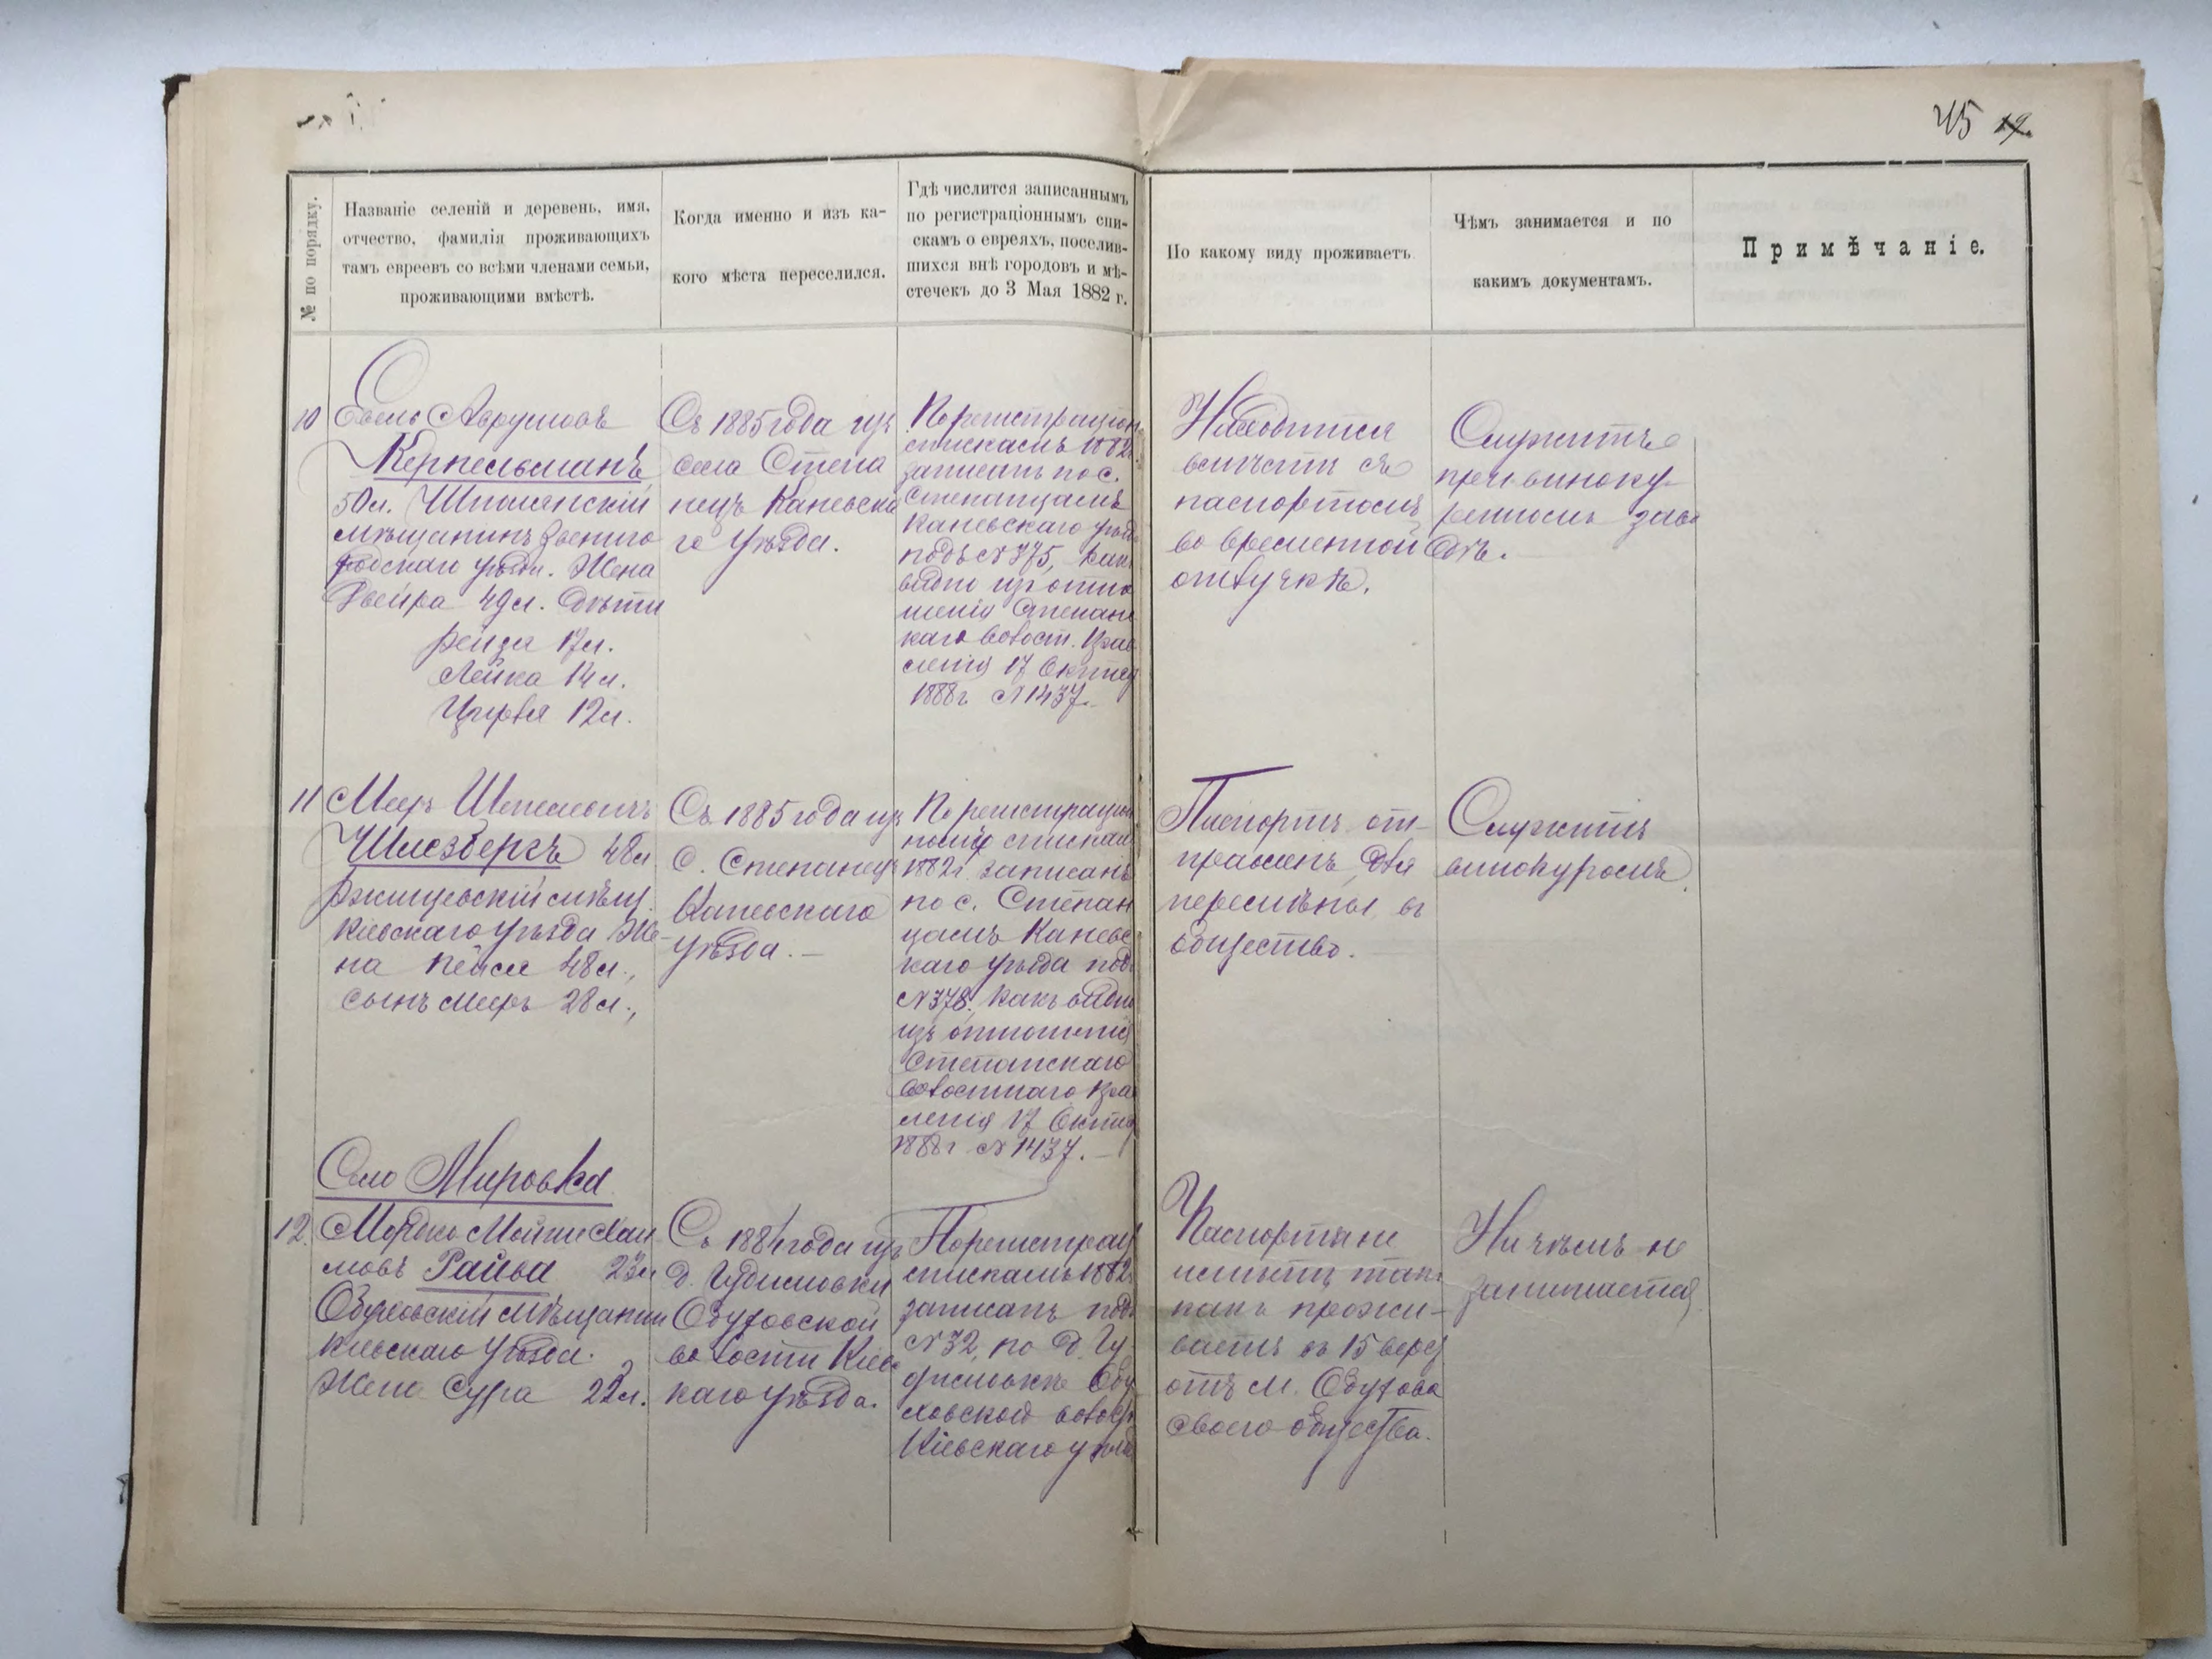 45 19.
№ по порядку.
Названіе селеній и деревень, имя,
отчество, фамилія проживающихъ
тамъ евреевъ со всѣми членами семьи,
проживающими вмѣстѣ.
Когда именно и изъ ка-
кого мѣста переселился.
Гдѣ числится записаннымъ
по регистраціоннымъ спи-
скамъ о евреяхъ, поселив-
шихся внѣ городовъ и мѣ-
стечекъ до 3 Мая 1882 г.
По какому виду проживаетъ
Чѣмъ занимается и по
какимъ документамъ.
Примѣчаніе.
10
Аврумовъ
Кернельманъ
50 л.
мѣщанинъ Звениго
родскаго уѣзда. Жена
49 л. дѣти
Рейзя 17 л.
Лейка 14 л.
12 л.
Съ 1885 года изъ
села Степа
нецъ Каневска
го уѣзда.
По регистрацион
спискамъ 1882
записанъ по с.
Степанцамъ
Каневскаго уѣзд
подъ № 375, как
видно из отно
шенія Степанс
каго волост. Прав
ленія 17 Октяб
1888 г № 1437.
Находится
вмѣстѣ съ
паспортомъ
во временной
отлучкѣ.
Служитъ
при виноку-
ренномъ заво
дѣ.
11
Мееръ
Шмезбергъ 48 л
Ржищевскій мѣщ.
Кіевскаго уѣзда Же-
на Пейся 48 л.,
сынъ Мееръ 28 л.,
Съ 1885 года изъ
с. Степанецъ
Каневскаго
уѣзда. —
По регистрацион
нымъ спискам
1882 г. записанъ
по с. Степан
цамъ Каневс
каго уѣзда под
№ 378, какъ видно
изъ отношенія
Степанскаго
волостнаго Прав
ленія 17 Октяб
1888 г № 1437. —
Паспортъ от-
правленъ для
перемѣны въ
общество.
Служитъ
винокуромъ.
Село Мировка
12.
Мордко Мошко Хаи
мовъ Райва 23 л
Обуховскій мѣщанин
Кіевскаго уѣзда.
Жена Сура 22 л.
Съ 1881 года изъ
д.
Обуховской
волости Кіевс
каго уѣзда.
По регистрац
спискамъ 1882
записанъ подъ
№ 32, по д. Гу
Обу
ховской волост
Кіевскаго уѣзд
Паспорта не
имѣетъ такъ
какъ прожи-
ваетъ въ 15 верс
отъ м. Обухова
своего общества.
Ничѣмъ не
занимается.